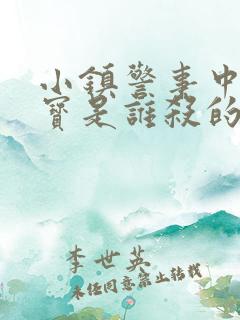 小鎮警事中
寶是誰殺的
李世英
未經同意禁止轉載